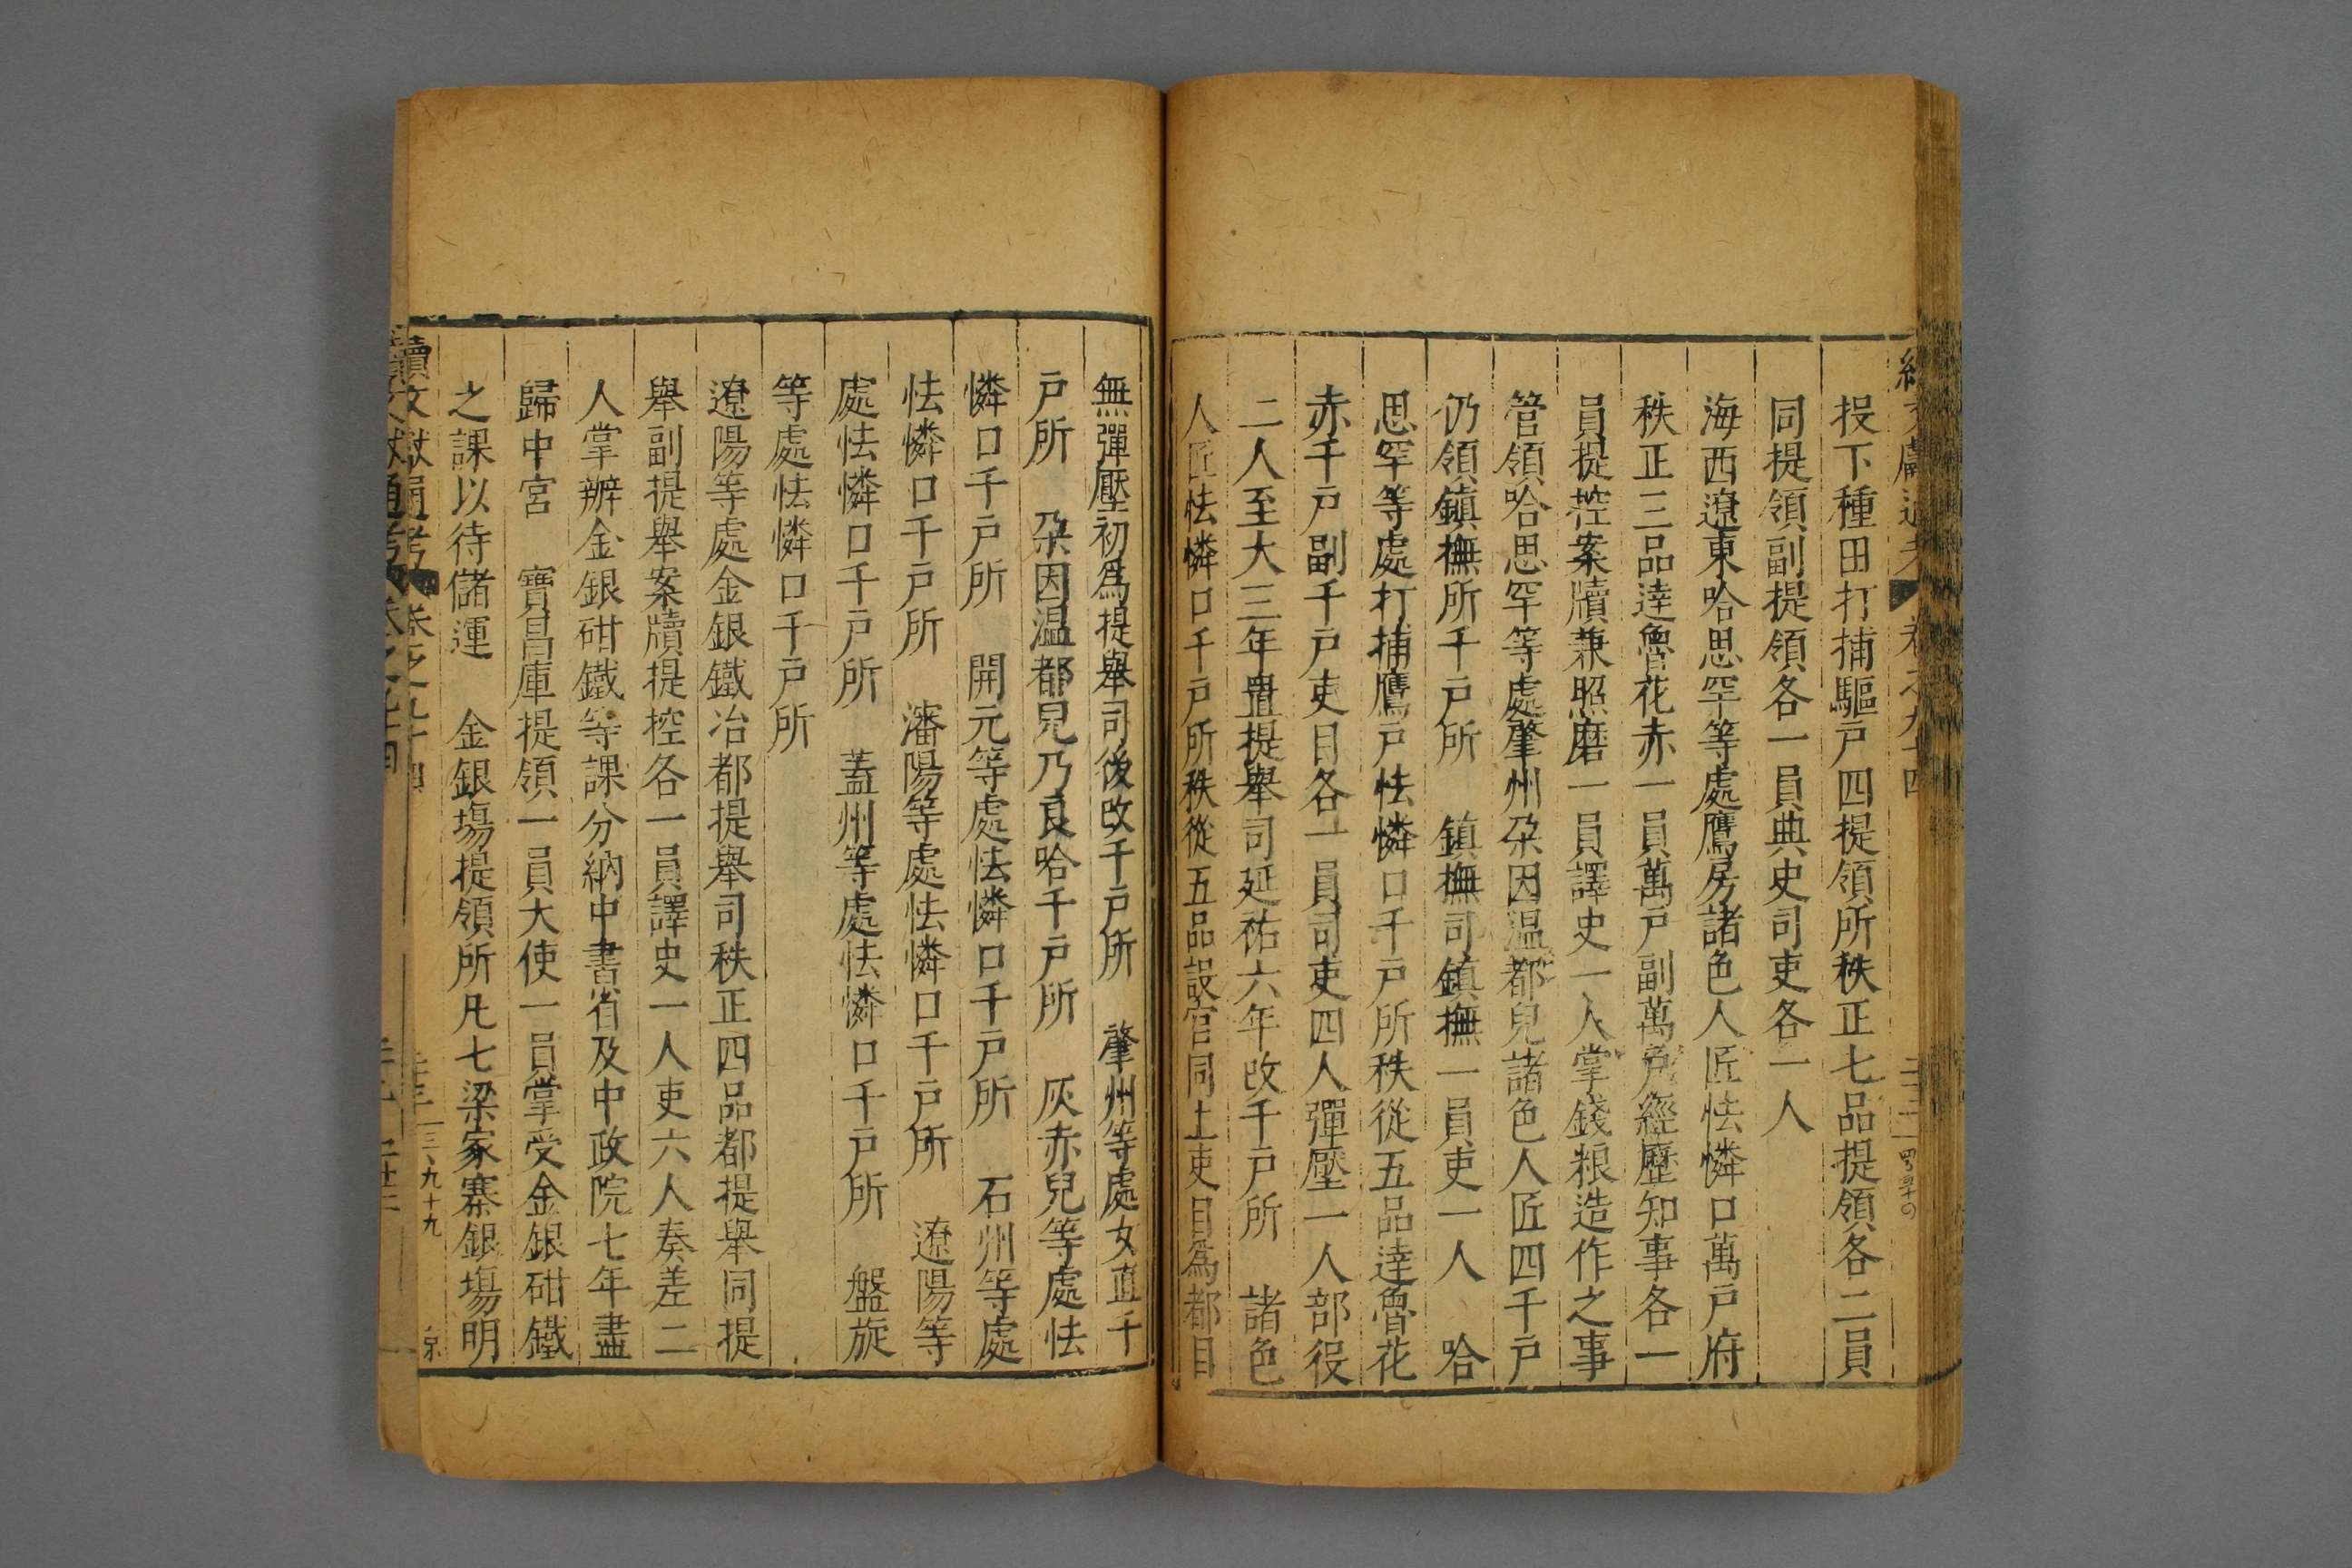 投下種田打捕驅戶四提領所秩正七品提領各二員
同提領副提領各一員典史司吏各一人
海西遼東哈思罕等處鷹房諸色人匠怯憐口萬戶府
秩正三品達魯花赤一員萬戶副萬戶經歷知事各一
員提控案牘兼照磨一員譯史一人掌錢糧造作之事
管領哈思罕等處肇州朶因温都兒諸色人匠四千戶
仍領鎮撫所千戶所　鎮撫司鎮撫一員吏一人　哈
思罕等處打捕鷹戶怯憐口千戶所秩從五品達魯花
赤千戶副千戶吏目各一員司吏四人彈壓一人部役
二人至大三年置提舉司延祐六年改千戶所　諸色
人匠怯憐口千戶所秩從五品設官同上吏目為都目
無彈壓初為提舉司後改千戶所　肇州等處女直千
戶所　朶因温都兒乃良哈千戶所　灰赤兒等處怯
憐口千戶所　開元等處怯憐口千戶所　石州等處
怯憐口千戶所　瀋陽等處怯憐口千戶所　遼陽等
處怯憐口千戶所　蓋州等處怯憐口千戶所　盤旋
等處怯憐口千戶所
遼陽等處金銀鐵冶都提舉司秩正四品都提舉同提
舉副提舉案牘提控各一員譯史一人吏六人奏差二
人掌辦金銀砒鐵等課分納中書省及中政院七年盡
歸中宮　寶昌庫提領一員大使一員掌受金銀砒鐵
之課以待儲運　金銀場提領所凡七梁家寨銀場明
續文獻通考　卷之九十四